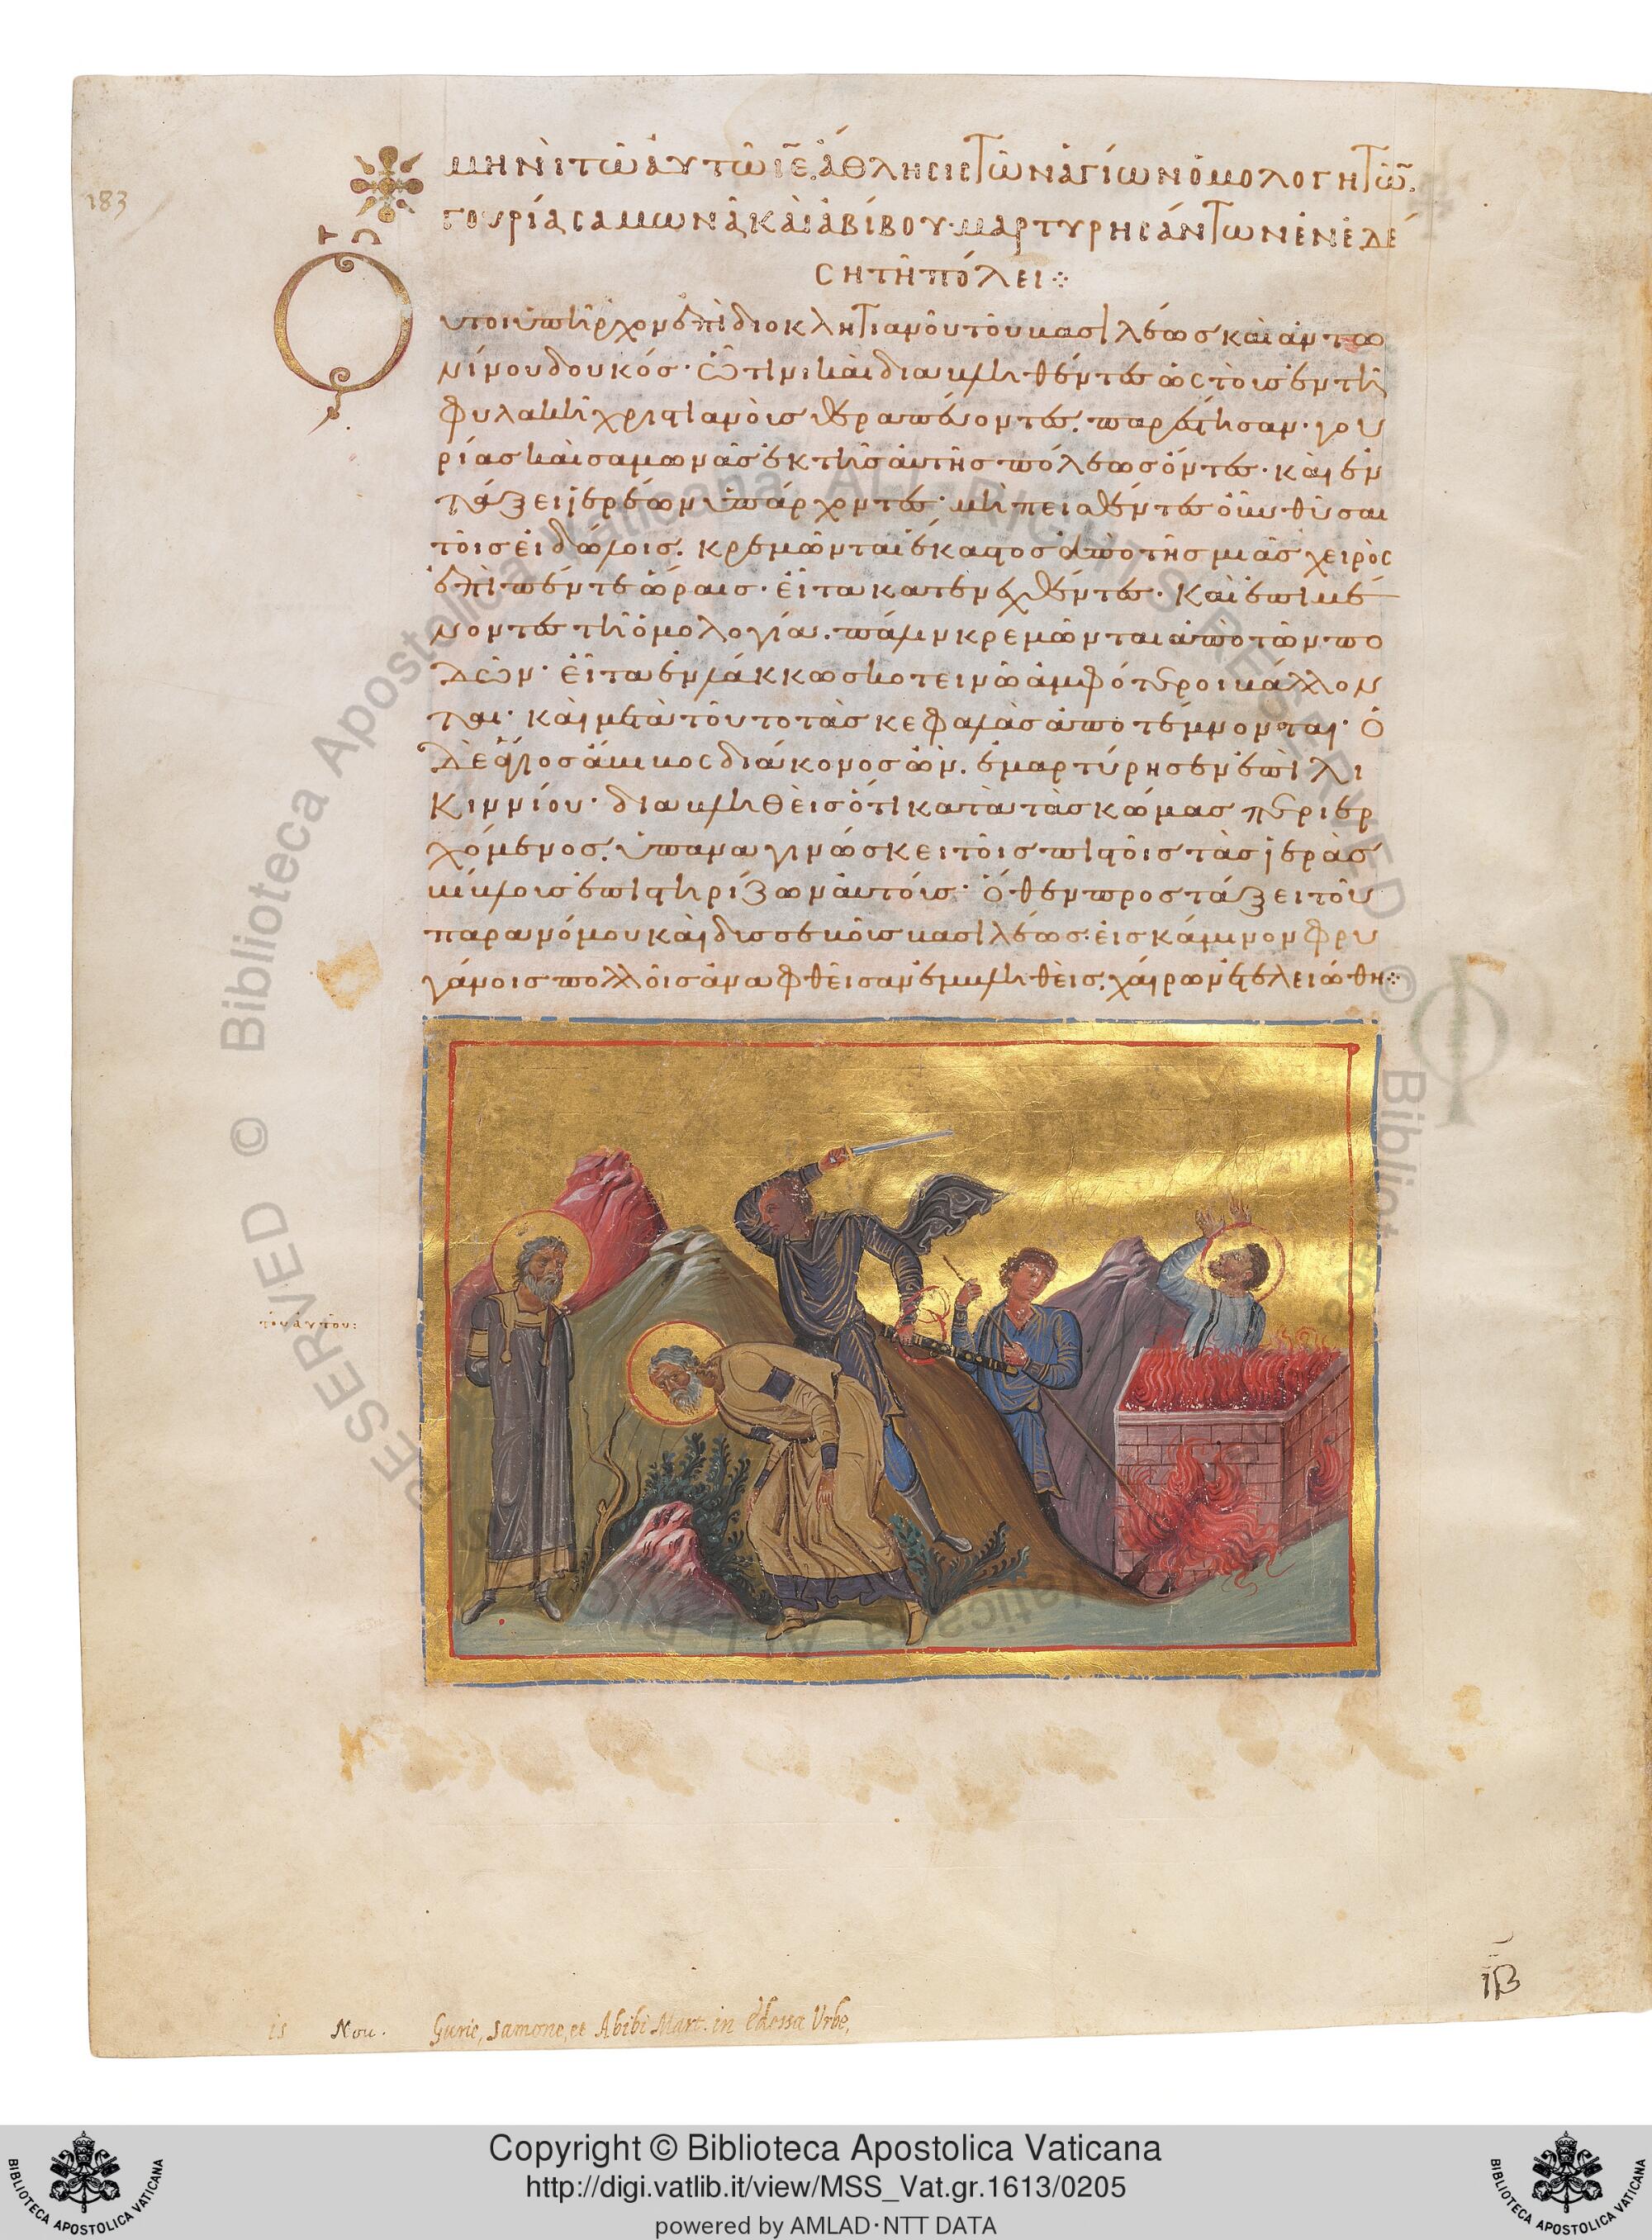 183
ΜΗΝῚ ΤΩ ΑΥΤΩ ΙΕ, ἌΘΛΗΣΙΣ ΤΩΝ ἉΓΊΩΝ ὉΜΟΛΟΓΗΤΩ͂.
ΓΟΥΡΊΑ ΣΑΜΩΝΑ ΚΑῚ ἈΒΊΒΟΥ· ΜΑΡΤΥΡΗΣΆΝΤΩΝ ἘΝ ἘΔΈ
ΣΗ ΤΗ ΠΌΛΕΙ
Οὗτοι ὑπῆρχον ἐπὶ διοκλητιανοῦ τοῦ βασιλέως καὶ ἀντω
νίνου δουκός· ᾧτινι καὶ διαβληθέντες ὡς τοῖς ἐν τῆ
φυλακῆ χριστιανοῖς θεραπεύοντες, παρέστησαν· γου
ρίας καὶ σαμωνᾶς ἐκ τῆς αὐτῆς πόλεως ὄντες· καὶ ἐν
τάξει ἱερέων ὑπάρχοντες· μὴ πεισθέντες οὖν θῦσαι
τοῖς εἰδώλοις, κρεμῶνται ἕκαστος ἀπὸ τῆς μιᾶς χειρὸς
ἐπὶ πέντε ὥραις· εἶτα κατενεχθέντες· καὶ ἐπιμέ
νοντες τῆ ὁμολογία, πάλιν κρεμῶνται ἀπὸ τῶν πο
δῶν· εἶτα ἐν λάκκω σκοτεινῶ ἀμφότεροι βάλλον
ται· καὶ μετὰ τοῦτο τὰς κεφαλὰς ἀποτέμνονται· Ὁ
δὲ ἅγιος ἄβιβος διάκονος ὢν, ἐμαρτύρησεν ἐπὶ λι
κιννίου· διαβληθεὶς ὅτι κατὰ τὰς κώμας περιερ
χόμενος, ὑπαναγινώσκει τοῖς πιστοῖς τὰς ἱερὰς
βίβλοις ἐπιστηρίζων αὐτοῖς· ὅθεν προστάξει τοῦ
παρανόμου καὶ δυσσεβοῦς βασιλέως, εἰς κάμινον φρυ
γάνοις πολλοῖς ἀναφθεῖσαν ἐμβληθεὶς, χαίρων ἐτελειώθη
τοῦ αὐτοῦ:
ιβ
is Nou. Gurie, Samone, et Abibi Mart. in Edessa Urbe,
© Biblioteca Apostolica Vaticana ALL RIGHTS RESERVED
Copyright © Biblioteca Apostolica Vaticana
http://digi.vatlib.it/view/MSS_Vat.gr.1613/0205
powered by AMLAD·NTT DATA
BIBLIOTECA APOSTOLICA VATICANA
BIBLIOTECA APOSTOLICA VATICANA